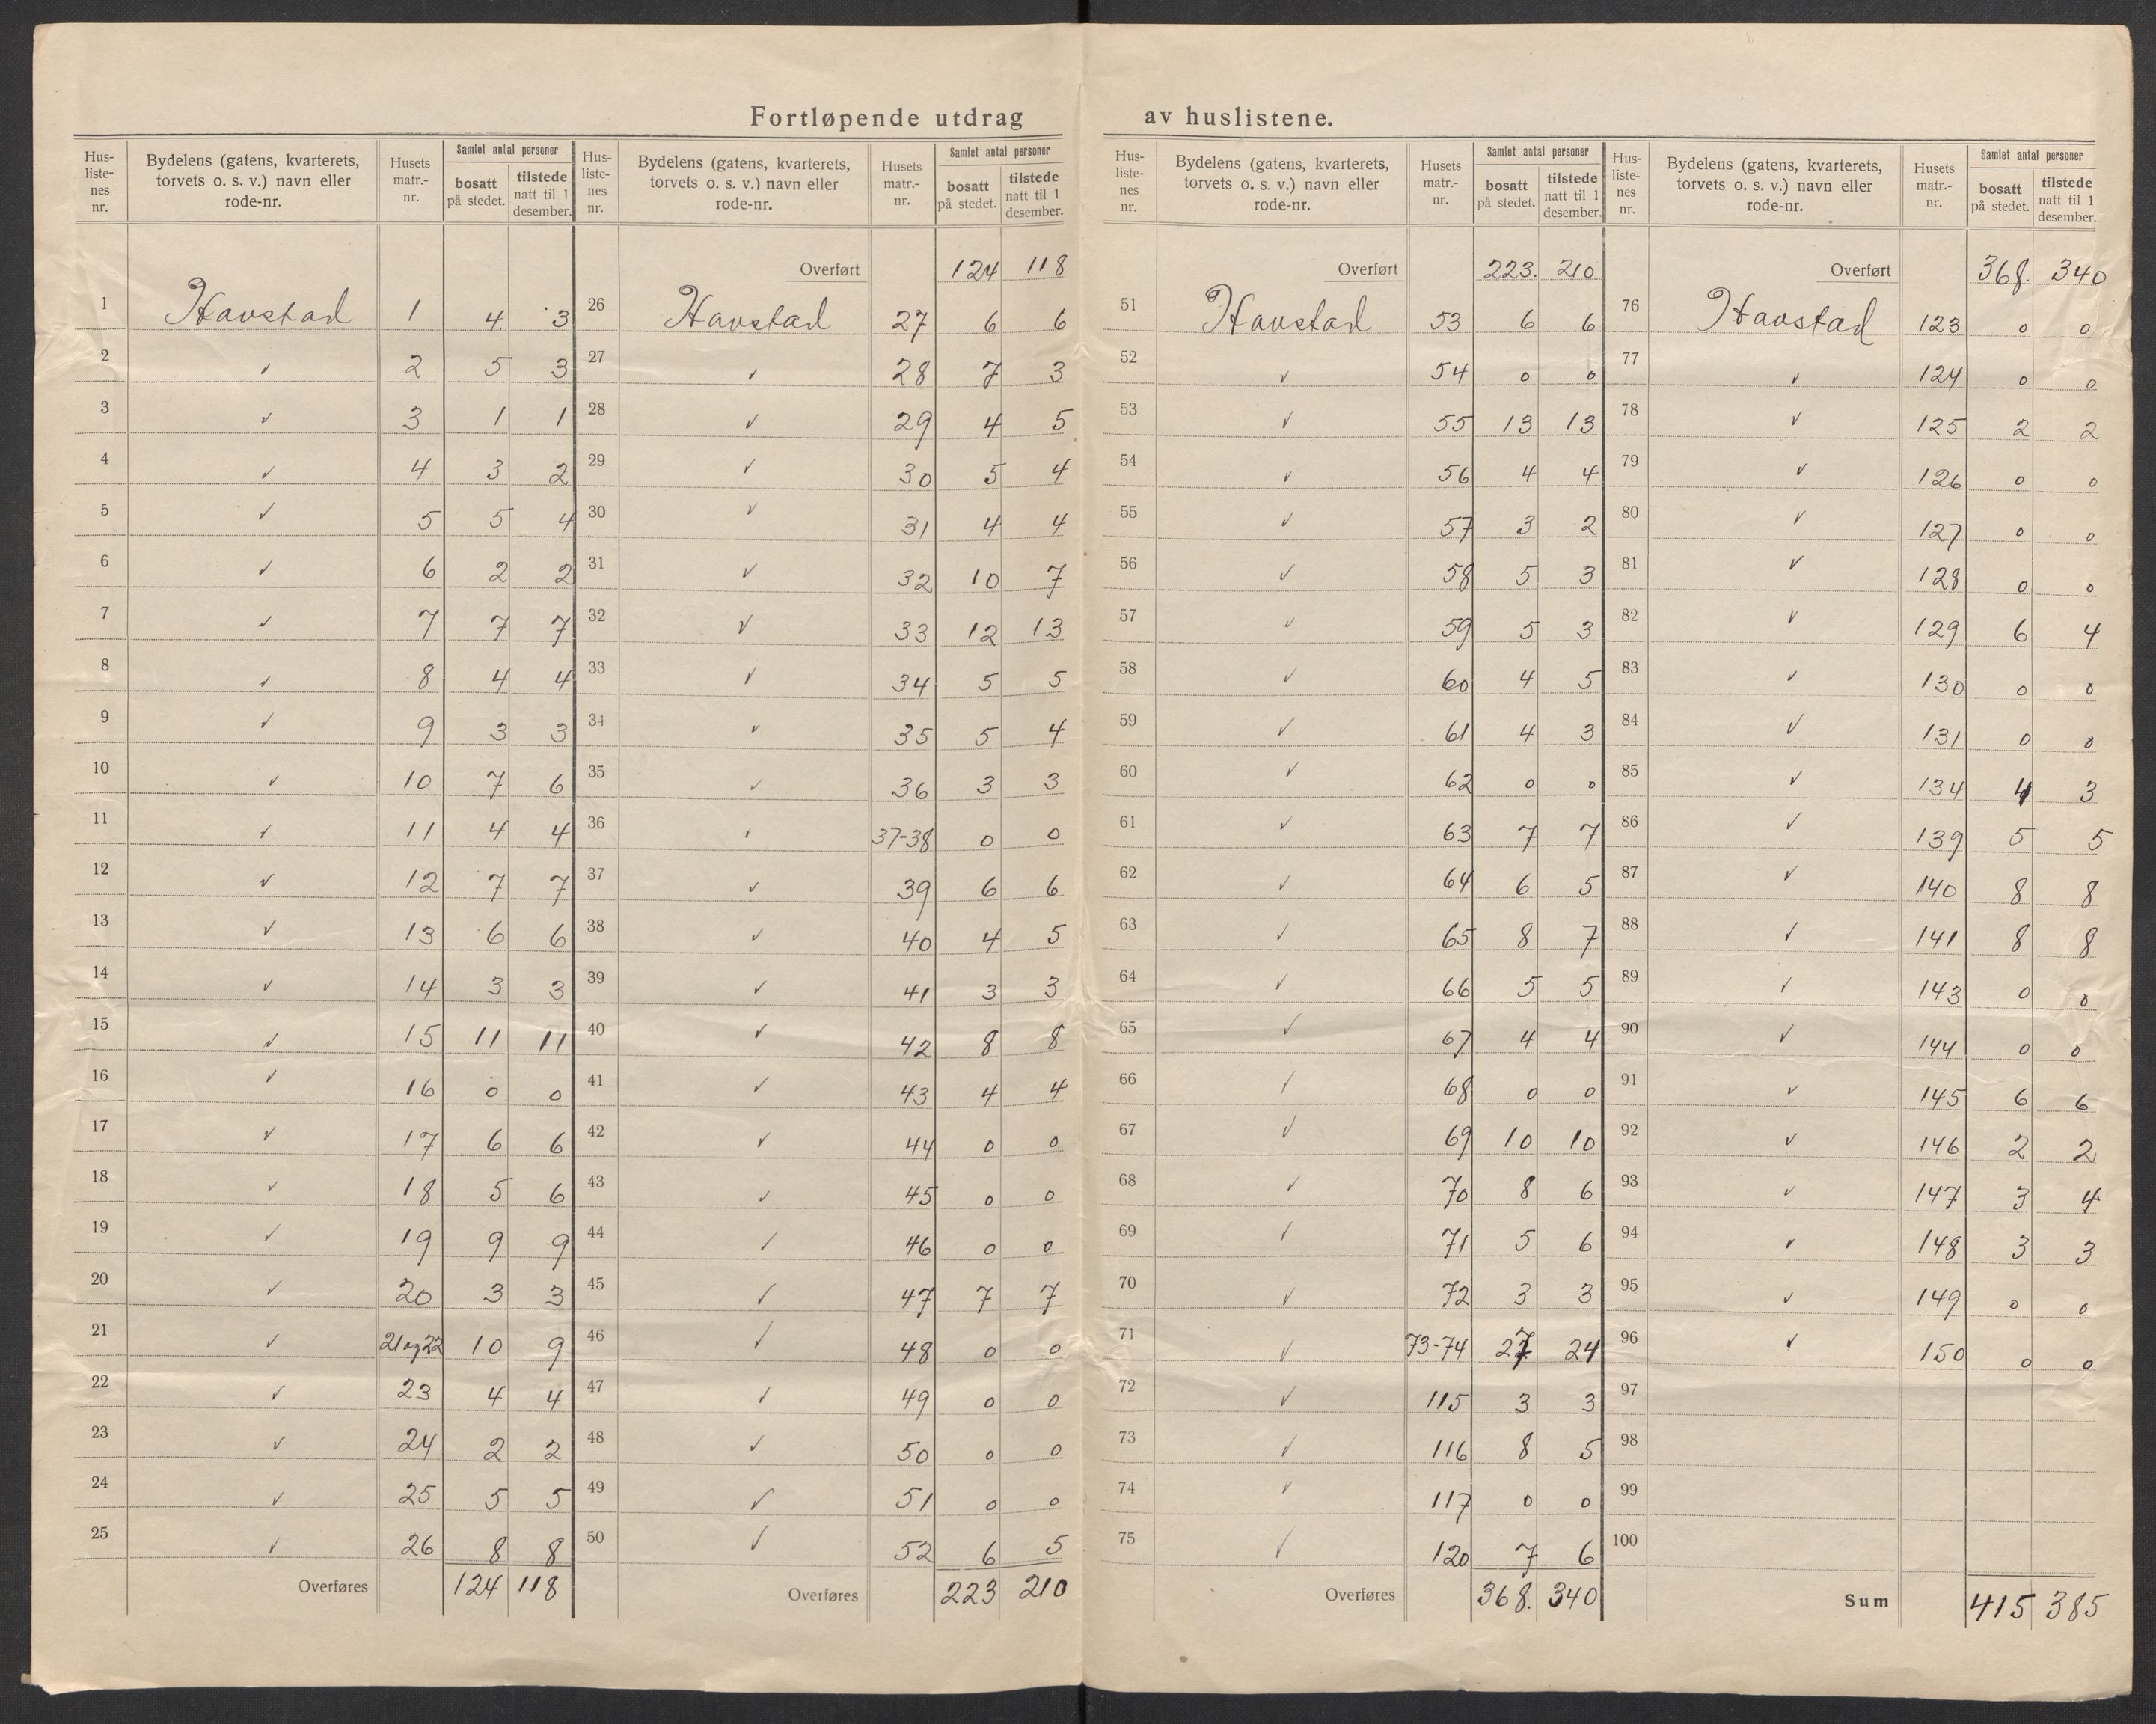 Fortløpende utdrag av huslistene.
Hus-liste-nes nr. | Bydelens (gatens, kvarterets, torvets o. s. v.) navn eller rode-nr. | Husets matr.-nr. | Samlet antal personer | bosatt på stedet. | tilstede natt til 1 desember.
1 Havstad 1 4 3
2 ✓ 2 5 3
3 ✓ 3 1 1
4 ✓ 4 3 2
5 ✓ 5 5 4
6 ✓ 6 2 2
7 ✓ 7 7 7
8 ✓ 8 4 4
9 ✓ 9 3 3
10 ✓ 10 7 6
11 ✓ 11 4 4
12 ✓ 12 7 7
13 ✓ 13 6 6
14 ✓ 14 3 3
15 ✓ 15 11 11
16 ✓ 16 0 0
17 ✓ 17 6 6
18 ✓ 18 5 6
19 ✓ 19 9 9
20 ✓ 20 3 3
21 ✓ 21 og 22 10 9
22 ✓ 23 4 4
23 ✓ 24 2 2
24 ✓ 25 5 5
25 ✓ 26 8 8
Overføres 124 118
Hus-liste-nes nr. | Bydelens (gatens, kvarterets, torvets o. s. v.) navn eller rode-nr. | Husets matr.-nr. | Samlet antal personer | bosatt på stedet. | tilstede natt til 1 desember.
Overført 124 118
26 Havstad 27 6 6
27 ✓ 28 7 3
28 ✓ 29 4 5
29 ✓ 30 5 4
30 ✓ 31 4 4
31 ✓ 32 10 7
32 ✓ 33 12 13
33 ✓ 34 5 5
34 ✓ 35 5 4
35 ✓ 36 3 3
36 ✓ 37-38 0 0
37 ✓ 39 6 6
38 ✓ 40 4 5
39 ✓ 41 3 3
40 ✓ 42 8 8
41 ✓ 43 4 4
42 ✓ 44 0 0
43 ✓ 45 0 0
44 ✓ 46 0 0
45 ✓ 47 7 7
46 ✓ 48 0 0
47 ✓ 49 0 0
48 ✓ 50 0 0
49 ✓ 51 0 0
50 ✓ 52 6 5
Overføres 223 210
Hus-liste-nes nr. | Bydelens (gatens, kvarterets, torvets o. s. v.) navn eller rode-nr. | Husets matr.-nr. | Samlet antal personer | bosatt på stedet. | tilstede natt til 1 desember.
Overført 223. 210
51 Havstad 53 6 6
52 ✓ 54 0 0
53 ✓ 55 13 13
54 ✓ 56 4 4
55 ✓ 57 3 2
56 ✓ 58 5 3
57 ✓ 59 5 3
58 ✓ 60 4 5
59 ✓ 61 4 3
60 ✓ 62 0 0
61 ✓ 63 7 7
62 ✓ 64 6 5
63 ✓ 65 8 7
64 ✓ 66 5 5
65 ✓ 67 4 4
66 ✓ 68 0 0
67 ✓ 69 10 10
68 ✓ 70 8 6
69 ✓ 71 5 6
70 ✓ 72 3 3
71 ✓ 73-74 27 24
72 ✓ 115 3 3
73 ✓ 116 8 5
74 ✓ 117 0 0
75 ✓ 120 7 6
Overføres 368. 340
Hus-liste-nes nr. | Bydelens (gatens, kvarterets, torvets o. s. v.) navn eller rode-nr. | Husets matr.-nr. | Samlet antal personer | bosatt på stedet. | tilstede natt til 1 desember.
Overført 368. 340
76 Havstad 123 0 0
77 ✓ 124 0 0
78 ✓ 125 2 2
79 ✓ 126 0 0
80 ✓ 127 0 0
81 ✓ 128 0 0
82 ✓ 129 6 4
83 ✓ 130 0 0
84 ✓ 131 0 0
85 ✓ 134 4 3
86 ✓ 139 5 5
87 ✓ 140 8 8
88 ✓ 141 8 8
89 ✓ 143 0 0
90 ✓ 144 0 0
91 ✓ 145 6 6
92 ✓ 146 2 2
93 ✓ 147 3 4
94 ✓ 148 3 3
95 ✓ 149 0 0
96 ✓ 150 0 0
97
98
99
100
Sum 415 385